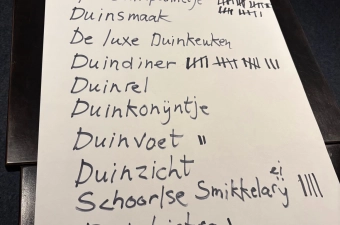 Duinsmaak
De luxe Duinkeuken
Duindiner
Duinrel
Duinkonijntje
Duinvoet
Duinzicht
ei
Schoorlse Smikkelarij